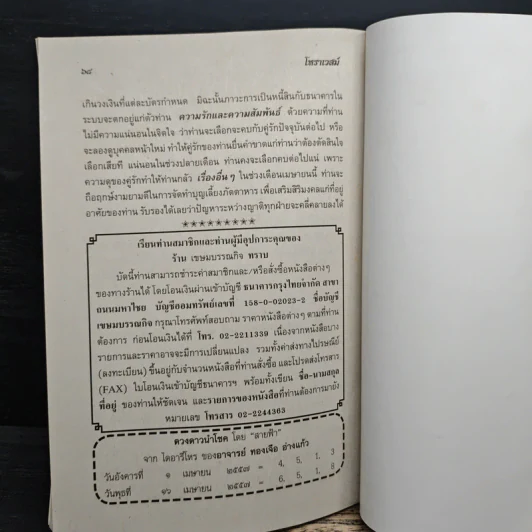 ๖๔
โหราเวสม์
เกินวงเงินที่แต่ละบัตรกำหนด มิฉะนั้นภาวะการเป็นหนี้สินกับธนาคารใน
ระบบจะตกอยู่แก่ตัวท่าน ความรักและความสัมพันธ์ ด้วยความที่ท่าน
ไม่มีความแน่นอนในจิตใจ ว่าท่านจะเลือกจะคบกับคู่รักปัจจุบันต่อไป หรือ
จะลองดูบุคคลหน้าใหม่ ทำให้คู่รักของท่านยื่นคำขาดแก่ท่านว่าต้องตัดสินใจ
เลือกเสียที แน่นอนในช่วงปลายเดือน ท่านคงจะเลือกคบต่อไปแน่ เพราะ
ความดุของคู่รักทำให้ท่านกลัว เรื่องอื่นๆ ในช่วงเดือนเมษายนนี้ ท่านจะ
ถือฤกษ์งามยามดีในการจัดทำบุญเลี้ยงภัตตาหาร เพื่อเสริมสิริมงคลแก่ที่อยู่
อาศัยของท่าน รับรองได้เลยว่าปัญหาระหว่างญาติทุกฝ่ายจะคลี่คลายลงได้
*********
เรียนท่านสมาชิกและท่านผู้มีอุปการะคุณของ
ร้าน เขษมบรรณกิจ ทราบ
บัดนี้ท่านสามารถชำระค่าสมาชิกและ/หรือสั่งซื้อหนังสือต่างๆ
ของทางร้านได้ โดยโอนเงินผ่านเข้าบัญชี ธนาคารกรุงไทยจำกัด สาขา
ถนนมหาไชย บัญชีออมทรัพย์เลขที่ 158-0-02023-2 ชื่อบัญชี
เขษมบรรณกิจ กรุณาโทรศัพท์สอบถาม ราคาหนังสือต่างๆ ตามที่ท่าน
ต้องการ ก่อนโอนเงินได้ที่ โทร. 02-2211339 เนื่องจากหนังสือบาง
รายการและราคาอาจจะมีการเปลี่ยนแปลง รวมทั้งค่าส่งทางไปรษณีย์
(ลงทะเบียน) ขึ้นอยู่กับจำนวนหนังสือที่ท่านสั่งซื้อ และโปรดส่งโทรสาร
(FAX) ใบโอนเงินเข้าบัญชีธนาคารฯ พร้อมทั้งเขียน ชื่อ-นามสกุล
ที่อยู่ ของท่านให้ชัดเจน และรายการของหนังสือที่ท่านต้องการมายัง
หมายเลข โทรสาร 02-2244363
ดวงดาวนำโชค โดย "สายฟ้า"
จาก ไดอารี่โหร ของอาจารย์ ทองเจือ อ่างแก้ว
วันอังคารที่ ๑ เมษายน ๒๕๕๗ = 4, 5, 1, 3
วันพุธที่ ๑๖ เมษายน ๒๕๕๗ = 6, 5, 1, 8